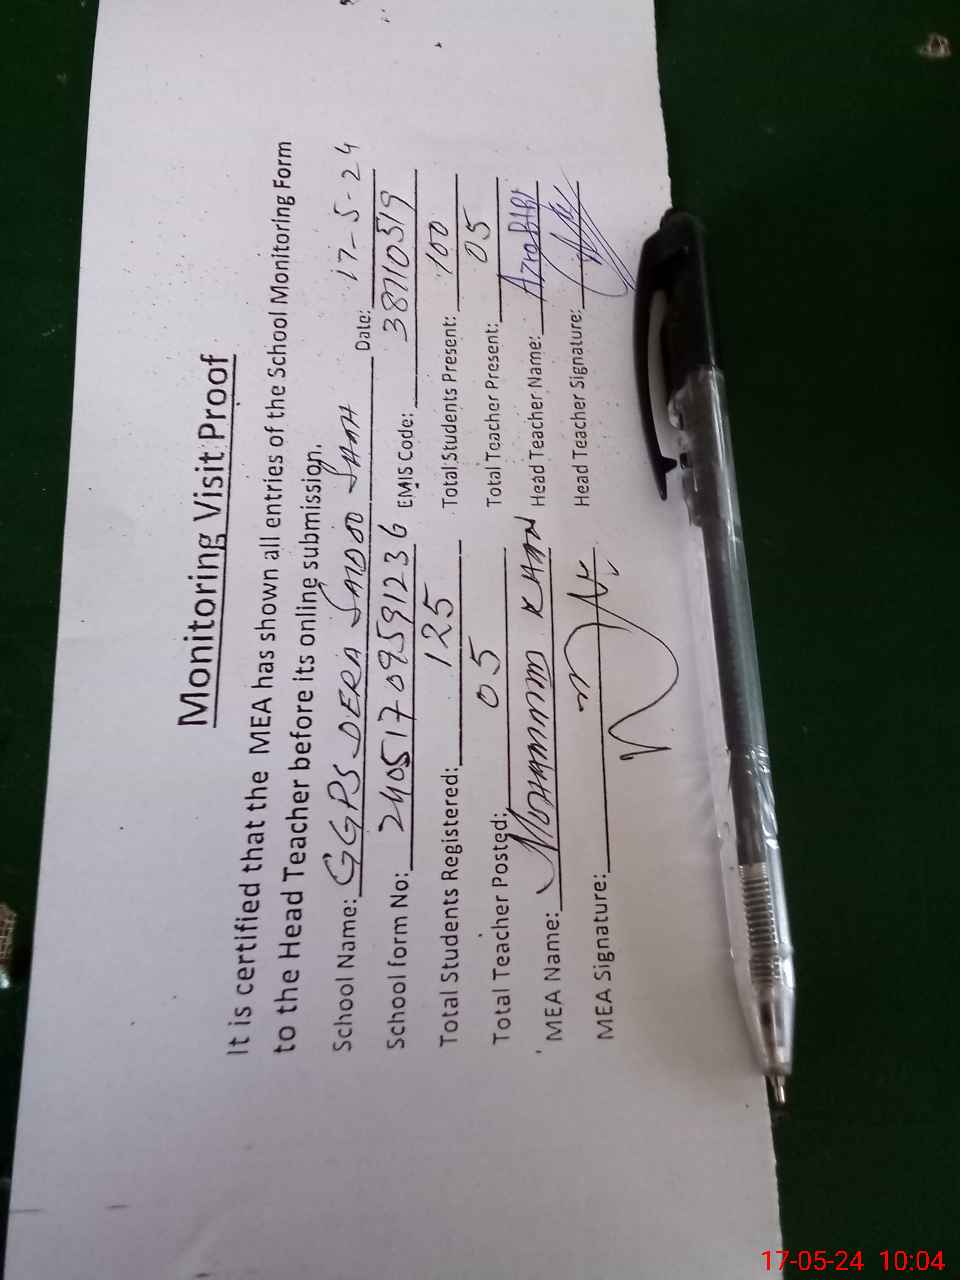 Monitoring Visit Proof
It is certified that the MEA has shown all entries of the School Monitoring Form
to the Head Teacher before its online submission.
School Name: GGPS DERA SAIDOO SHAH Date: 17-5-24
School form No: 24051709591236 EMIS Code: 38710519
Total Students Registered: 125 Total Students Present: 100
Total Teacher Posted: 05 Total Teacher Present: 05
MEA Name: MOHAMMAD KHAN Head Teacher Name: Azra BIBI
MEA Signature: Head Teacher Signature:
17-05-24 10:04